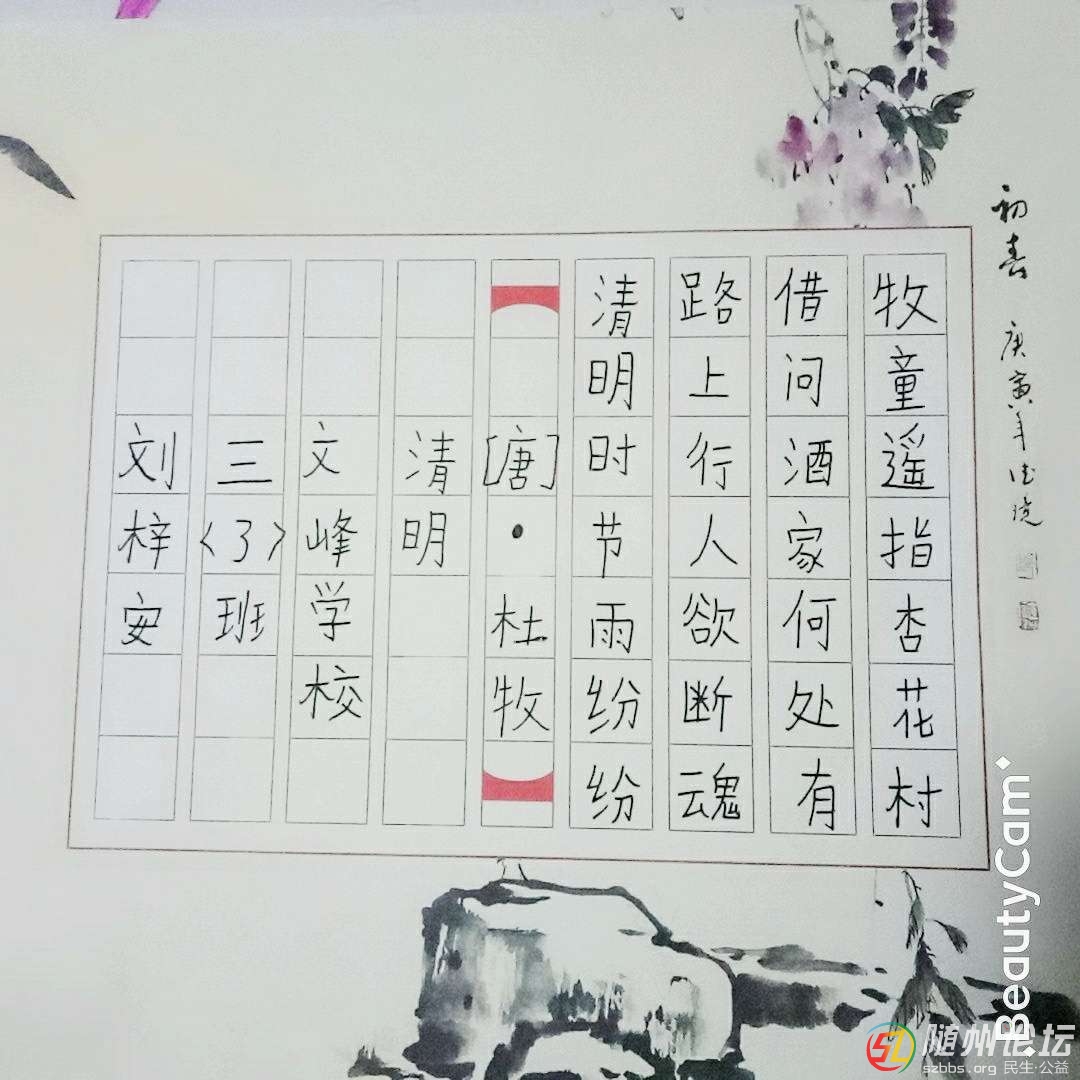 刘梓安
三〈3〉班
文峰学校
清明
[唐]·杜牧
清明时节雨纷纷
路上行人欲断魂
借问酒家何处有
牧童遥指杏花村
初春
庚寅年
BeautyCam
随州论坛
szbbs.org 民生·公益